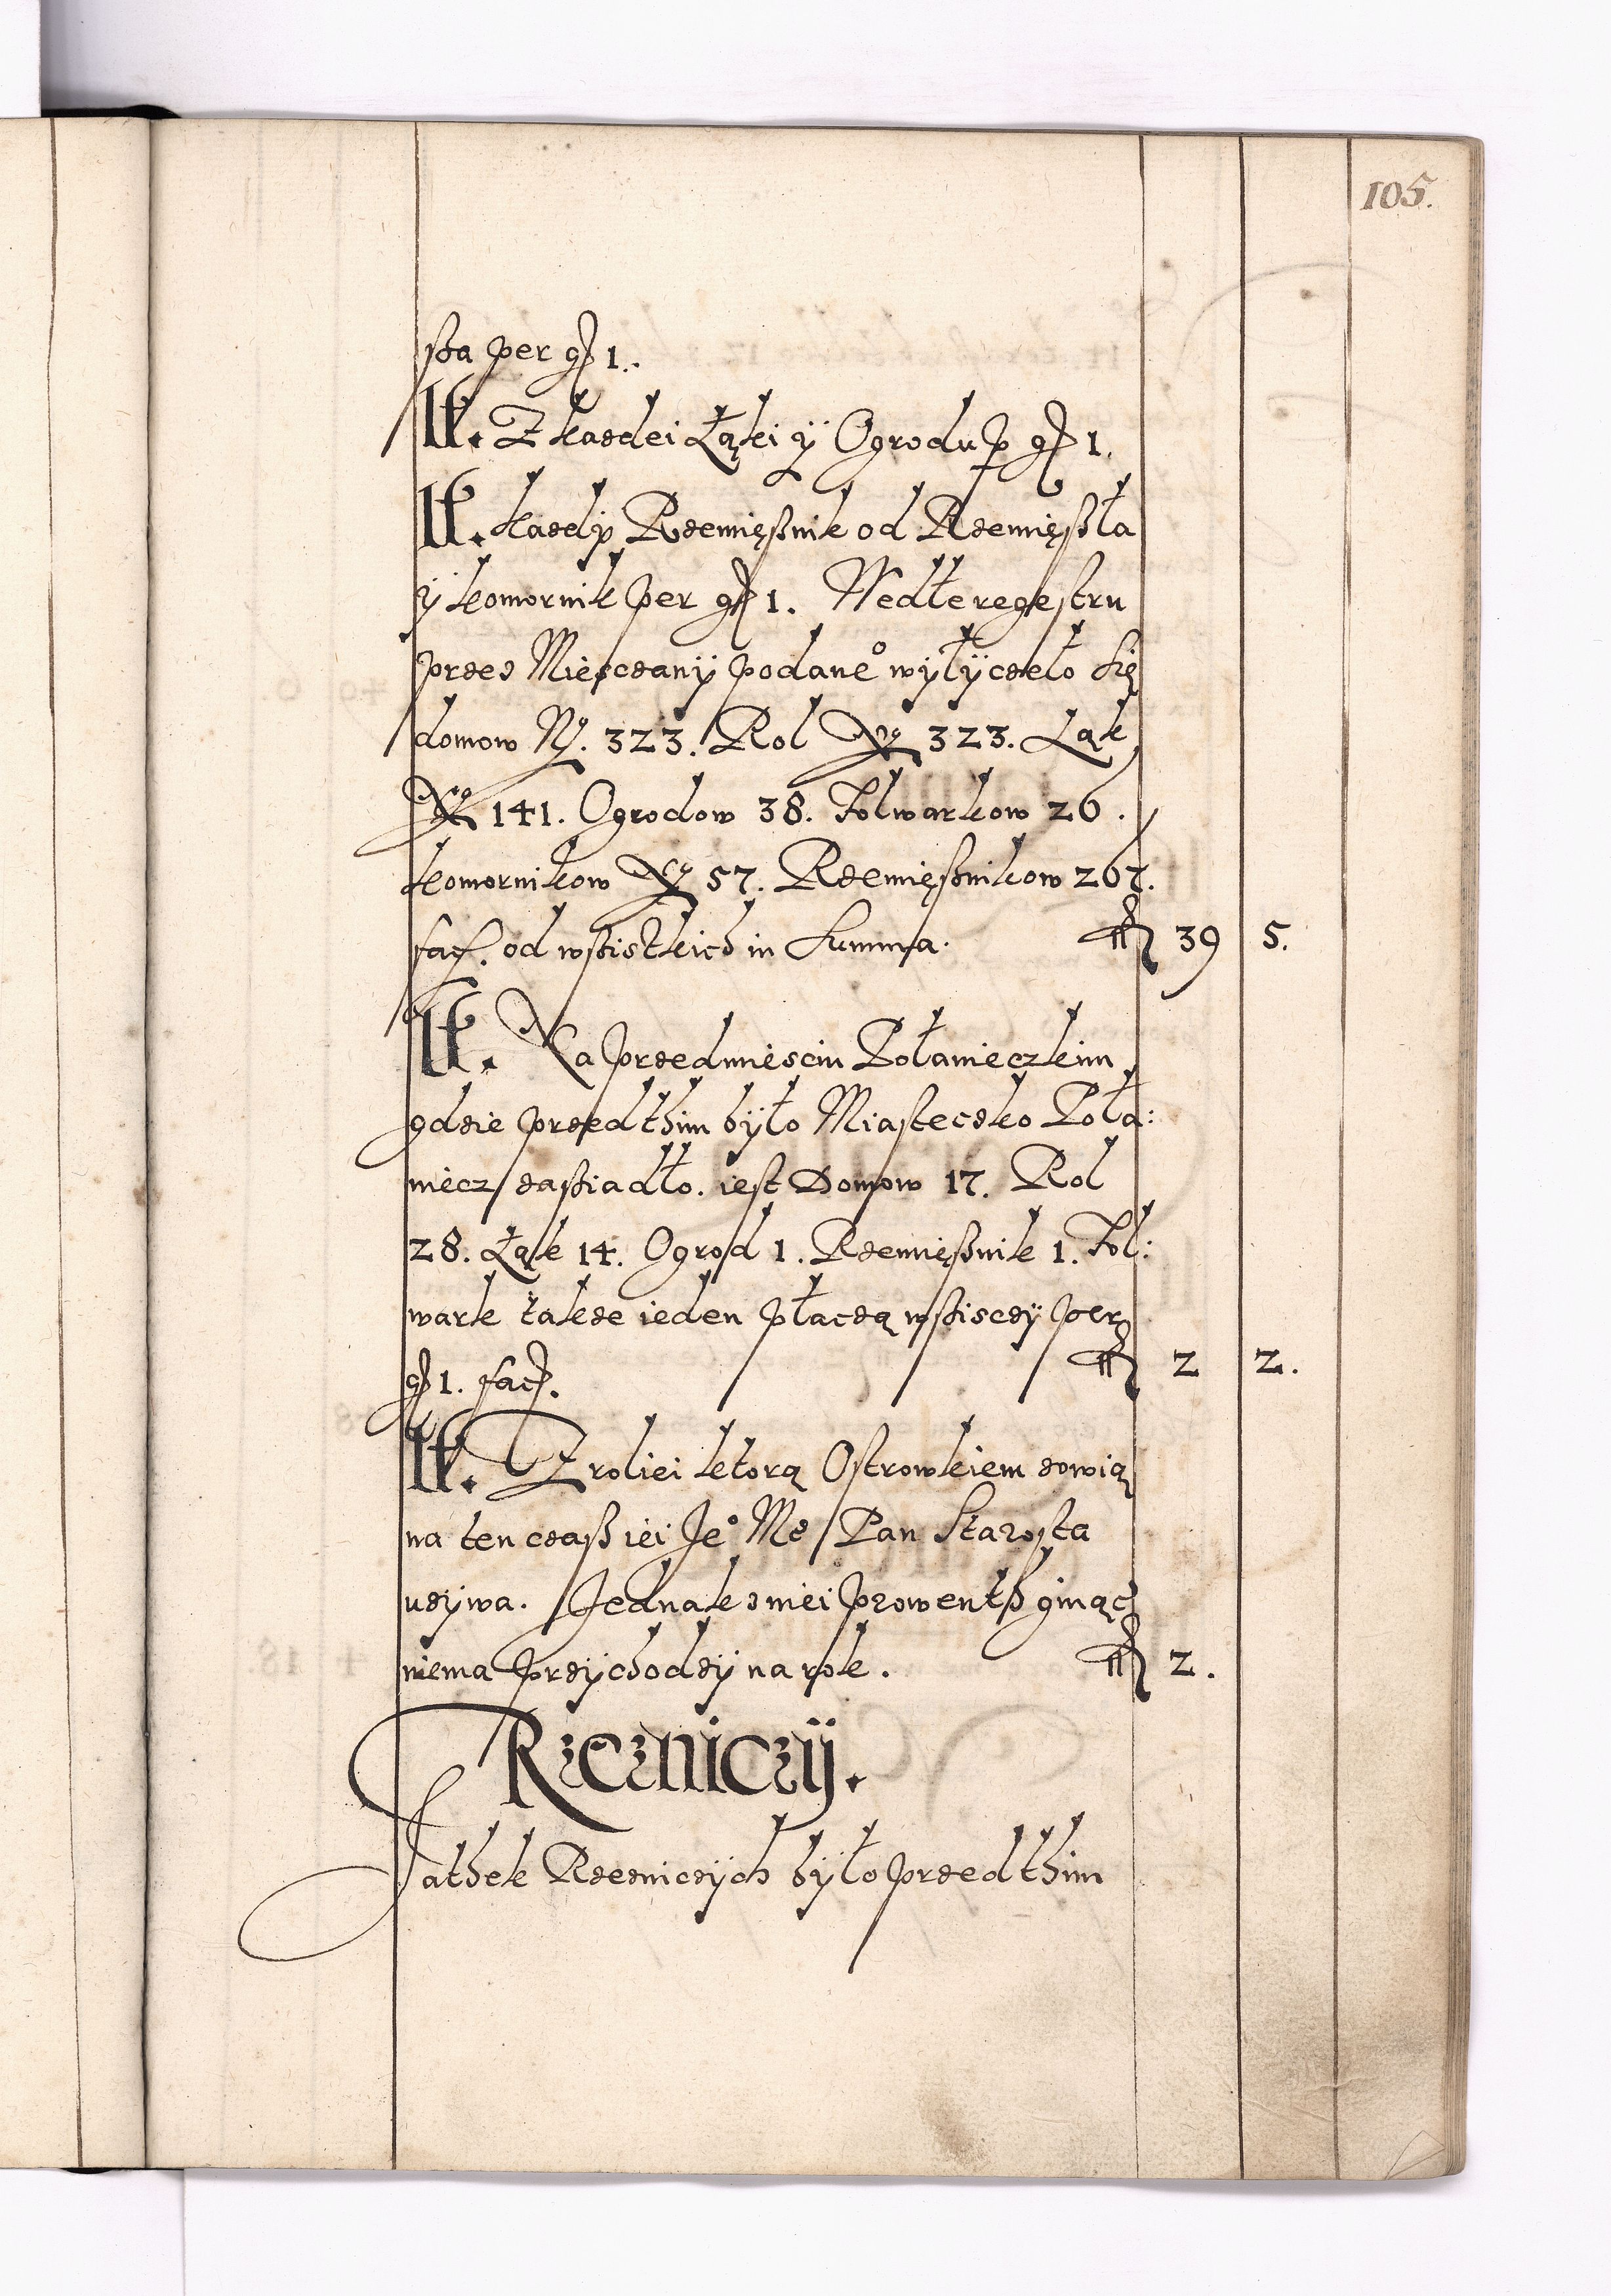 105.
ßta per gr 1.
It. Z kazdei Łąki y Ogrodu p gr 1.
It. kazdy Rzemięßnik od Rzemięßła
y komornik per gr 1. Wedle regestru
przez Miesczany podane° wyłyczeło się
domow N° 323. Rol N° 323. Łąk
N° 141. Ogrodow 38. Folwarkow 26.
komornikow N° 57. Rzemięßnikow 267.
facit. od wßistkich in Summa. fl 39 5.
It. Na przedmiesciu Połanieczkim
gdzie przedthim było Miasteczko Poła:
niecz zaßiadło. iest Domow 17. Rol
28. Łąk 14. Ogrod 1. Rzemięßnik 1. Fol:
wark także ieden płaczą wßisczy per
gr 1. facit. fl 2 2.
It. Z roliei ktorą Ostrowkiem zowią
na ten czaß iei Je° Mć Pan Starosta
używa. Jednak z niei prowenth ginąć
niema przychodzy na rok. fl 2.
Rzezniczy.
Jathek Rzezniczych było przedthim